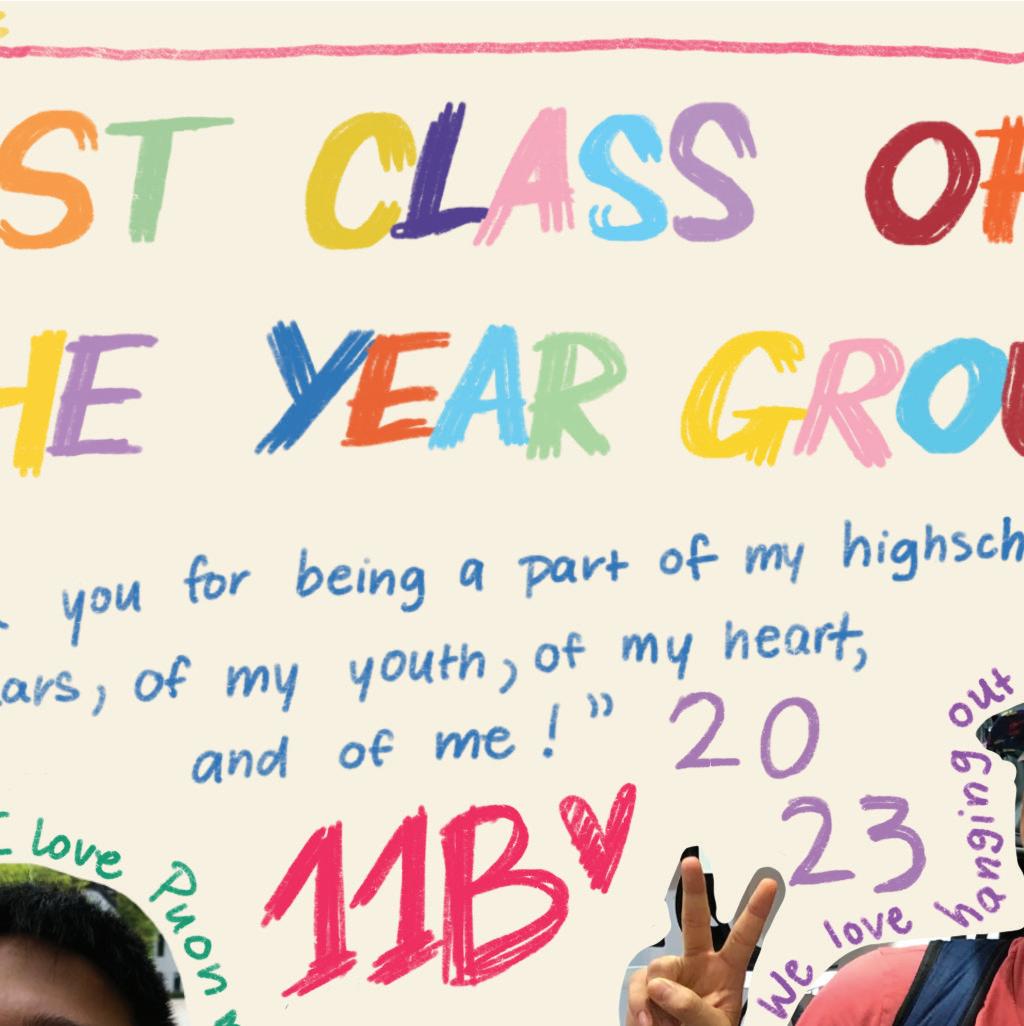 ST CLASS OF
HE YEAR GROU
you for being a part of my highsch
ars, of my youth, of my heart,
and of me!”
20
23
11B
I love Puon
We love hanging out